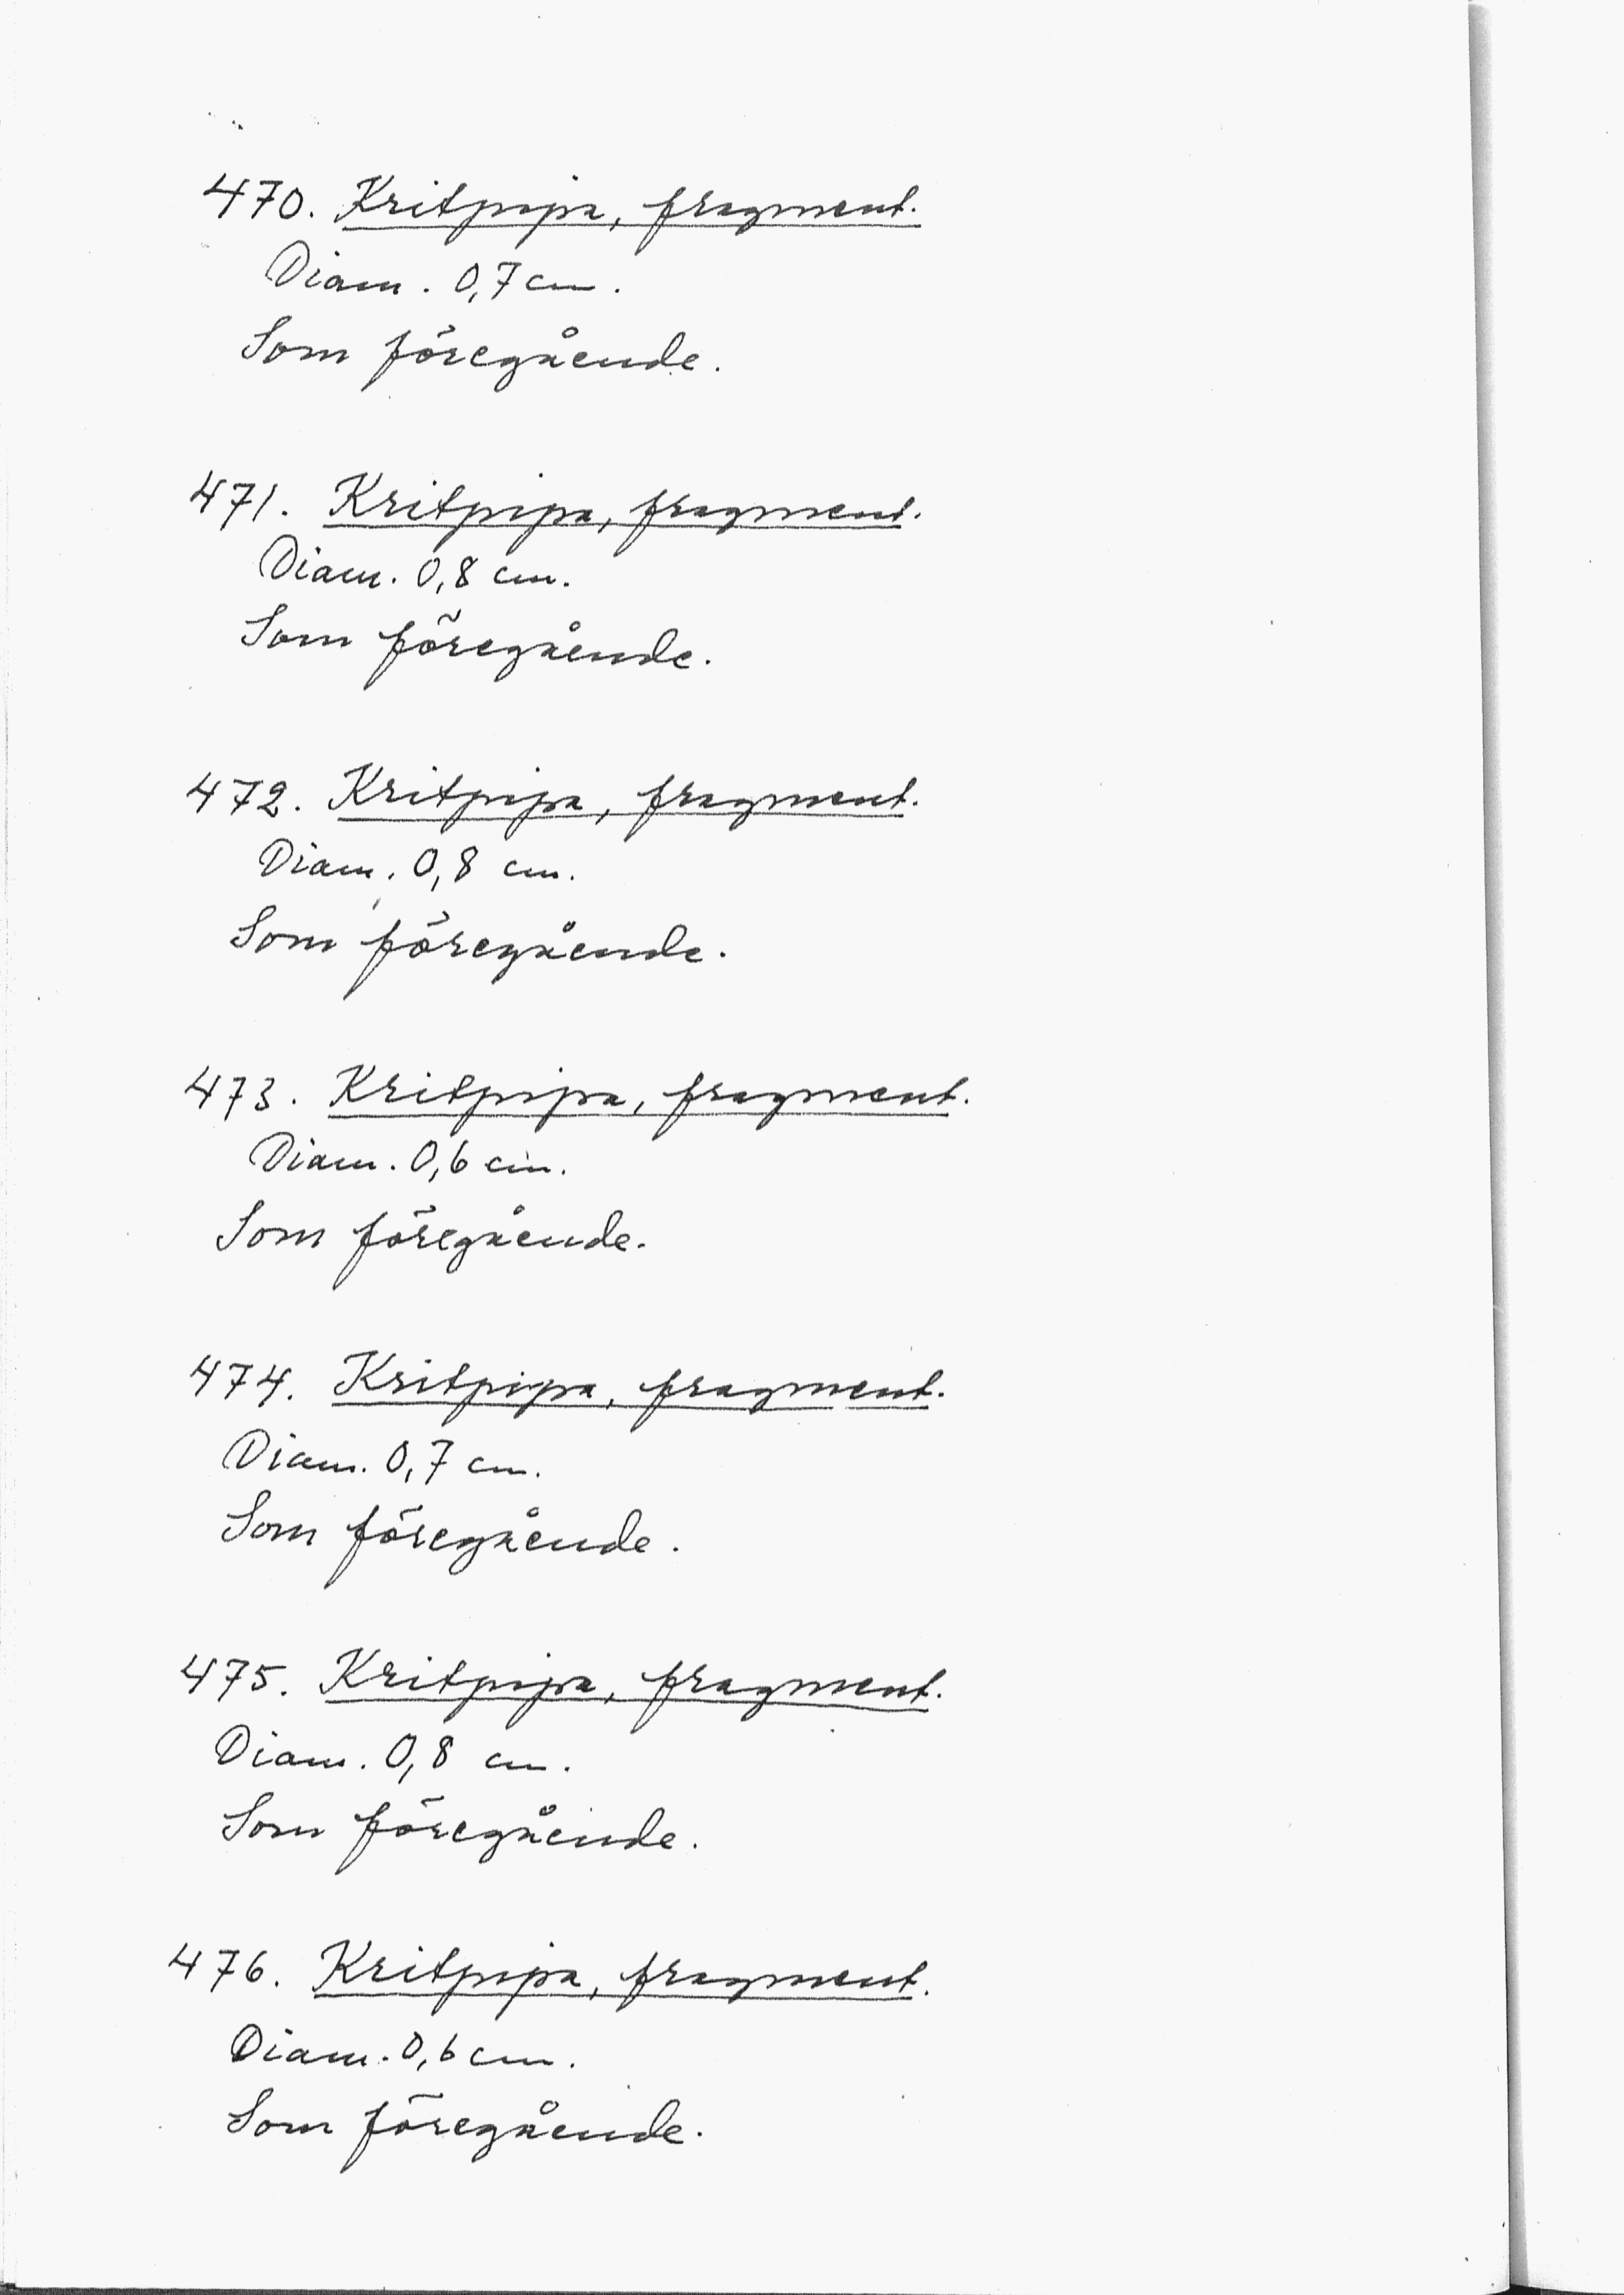 470. Kritpipa, fragment.
Diam. 0,7 cm.
Som föregående.
471. Kritpipa, fragment.
Diam. 0,8 cm.
Som föregående.
472. Kritpipa, fragment.
Diam. 0,8 cm.
Som föregående.
473. Kritpipa, fragment.
Diam. 0,6 cm.
Som föregående.
474. Kritpipa, fragment.
Diam. 0,7 cm.
Som föregående.
475. Kritpipa, fragment.
Diam. 0,8 cm.
Som föregående.
476. Kritpipa, fragment.
Diam. 0,6 cm.
Som föregående.